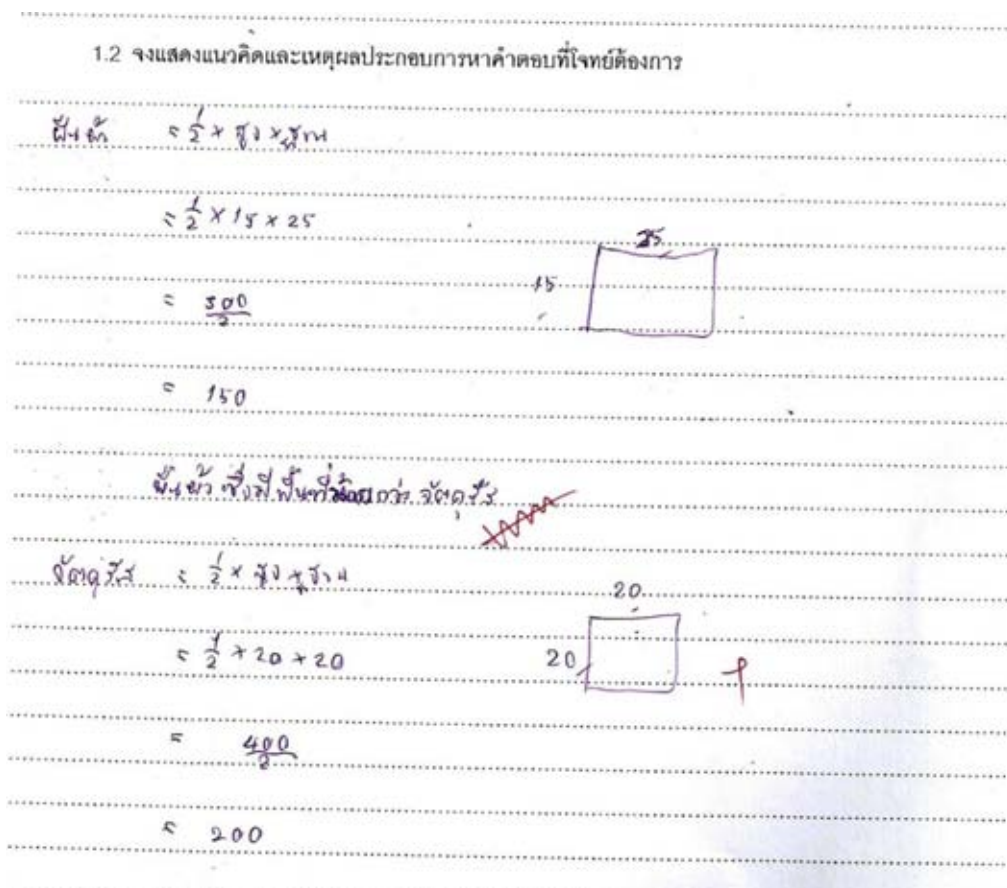 1.2 จงแสดงแนวคิดและเหตุผลประกอบการหาคำตอบที่โจทย์ต้องการ
ผืนผ้า = 1/2 × สูง × ฐาน
= 1/2 × 15 × 25
25
15
= 300/2
= 150
ผืนผ้า ซึ่งมีพื้นที่น้อยกว่า จัตุรัส
= 1/2 × สูง × ฐาน
20
= 1/2 × 20 × 20
20
= 400/2
= 200